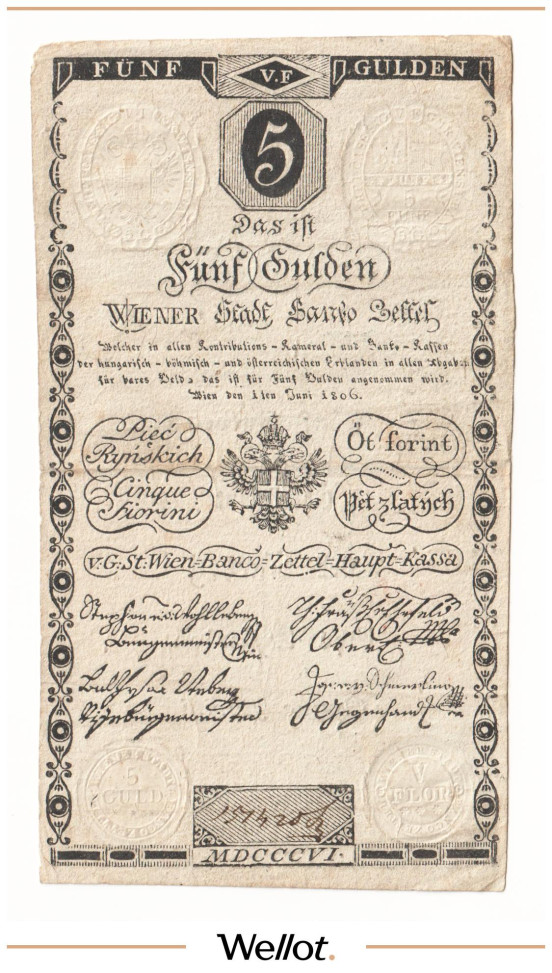 FÜNF V.F GULDEN
5
Das ist
Fünf Gulden
WIENER Stadt Banko Zettel
Welcher in allen Kontributions - Kameral - und Banko - Kassen
der hungarisch - böhmisch - und österreichischen Erblanden in allen Abgaben
für bares Geld, das ist für Fünf Gulden angenommen wird.
Wien den 1ten Juni 1806.
Pięć Ryńskich
Öt forint
Cinque Fiorini
Pět zlatých
v. G: St: Wien=Banco=Zettel=Haupt=Kassa
Bürgermeister
Ober
Vizebürgermeister
Gegenhand
5 GULD.
V FLOR
MDCCCVI.
Wellot.